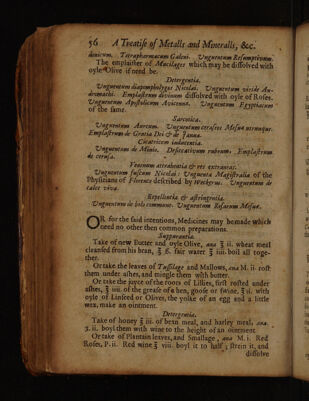 56 A Treatise of Metalls and Mineralls, &c.
donicum. Tetrapharmacum Galeni. Unguentum Resumptivum.
The emplaister of Mucilages which may be dissolved with
oyle Olive if need be.
Detergentia.
Unguentum diapompholygos Nicolai. Unguentum viride An-
dromachi. Emplastrum divinum dissolved with oyle of Roses.
Unguentum Apostolicum Avicenna. Unguentum Egyptiacum
of the same.
Sarcotica.
Unguentum Aureum. Unguentum cerusees Mesue utrumque.
Emplastrum de Gratia Dei & de Janua.
Cicatricem inducentia.
Unguentum de Minio. Desiccativum rubrum. Emplastrum
de cerusa.
Venenum attrahentia & res extraneas.
Unguentum fuscum Nicolai: Unguenta Magistralia of the
Physitians of Florence described by Weckerus. Unguentum de
calce viva.
Repellentia & astringentia.
Unguentum de bolo communi. Unguentum Rosarum Mesue.
OR for the said intentions, Medicines may be made which
need no other then common preparations.
Suppurantia.
Take of new Butter and oyle Olive, ana ℥ ii. wheat meal
cleansed from his bran, ℥ ß. fair water ℥ iiii. boil all toge-
ther.
Or take the leaves of Tussilage and Mallows, ana M. ii. rost
them under ashes, and mingle them with butter.
Or take the juyce of the roots of Lillies, first rosted under
ashes, ℥ iiii. of the grease of a hen, goose or swine, ℥ ii. with
oyle of Linseed or Olives, the yolke of an egg and a little
wax, make an ointment.
Detergentia.
Take of honey ℥ iii. of bean meal, and harley meal, ana.
ʒ. ii. boyl them with wine to the height of an ointment.
Or take of Plantain leaves, and Smallage, ana M. i. Red
Roses, P. ii. Red wine ℥ viii. boyl it to half; strein it, and
dissolve